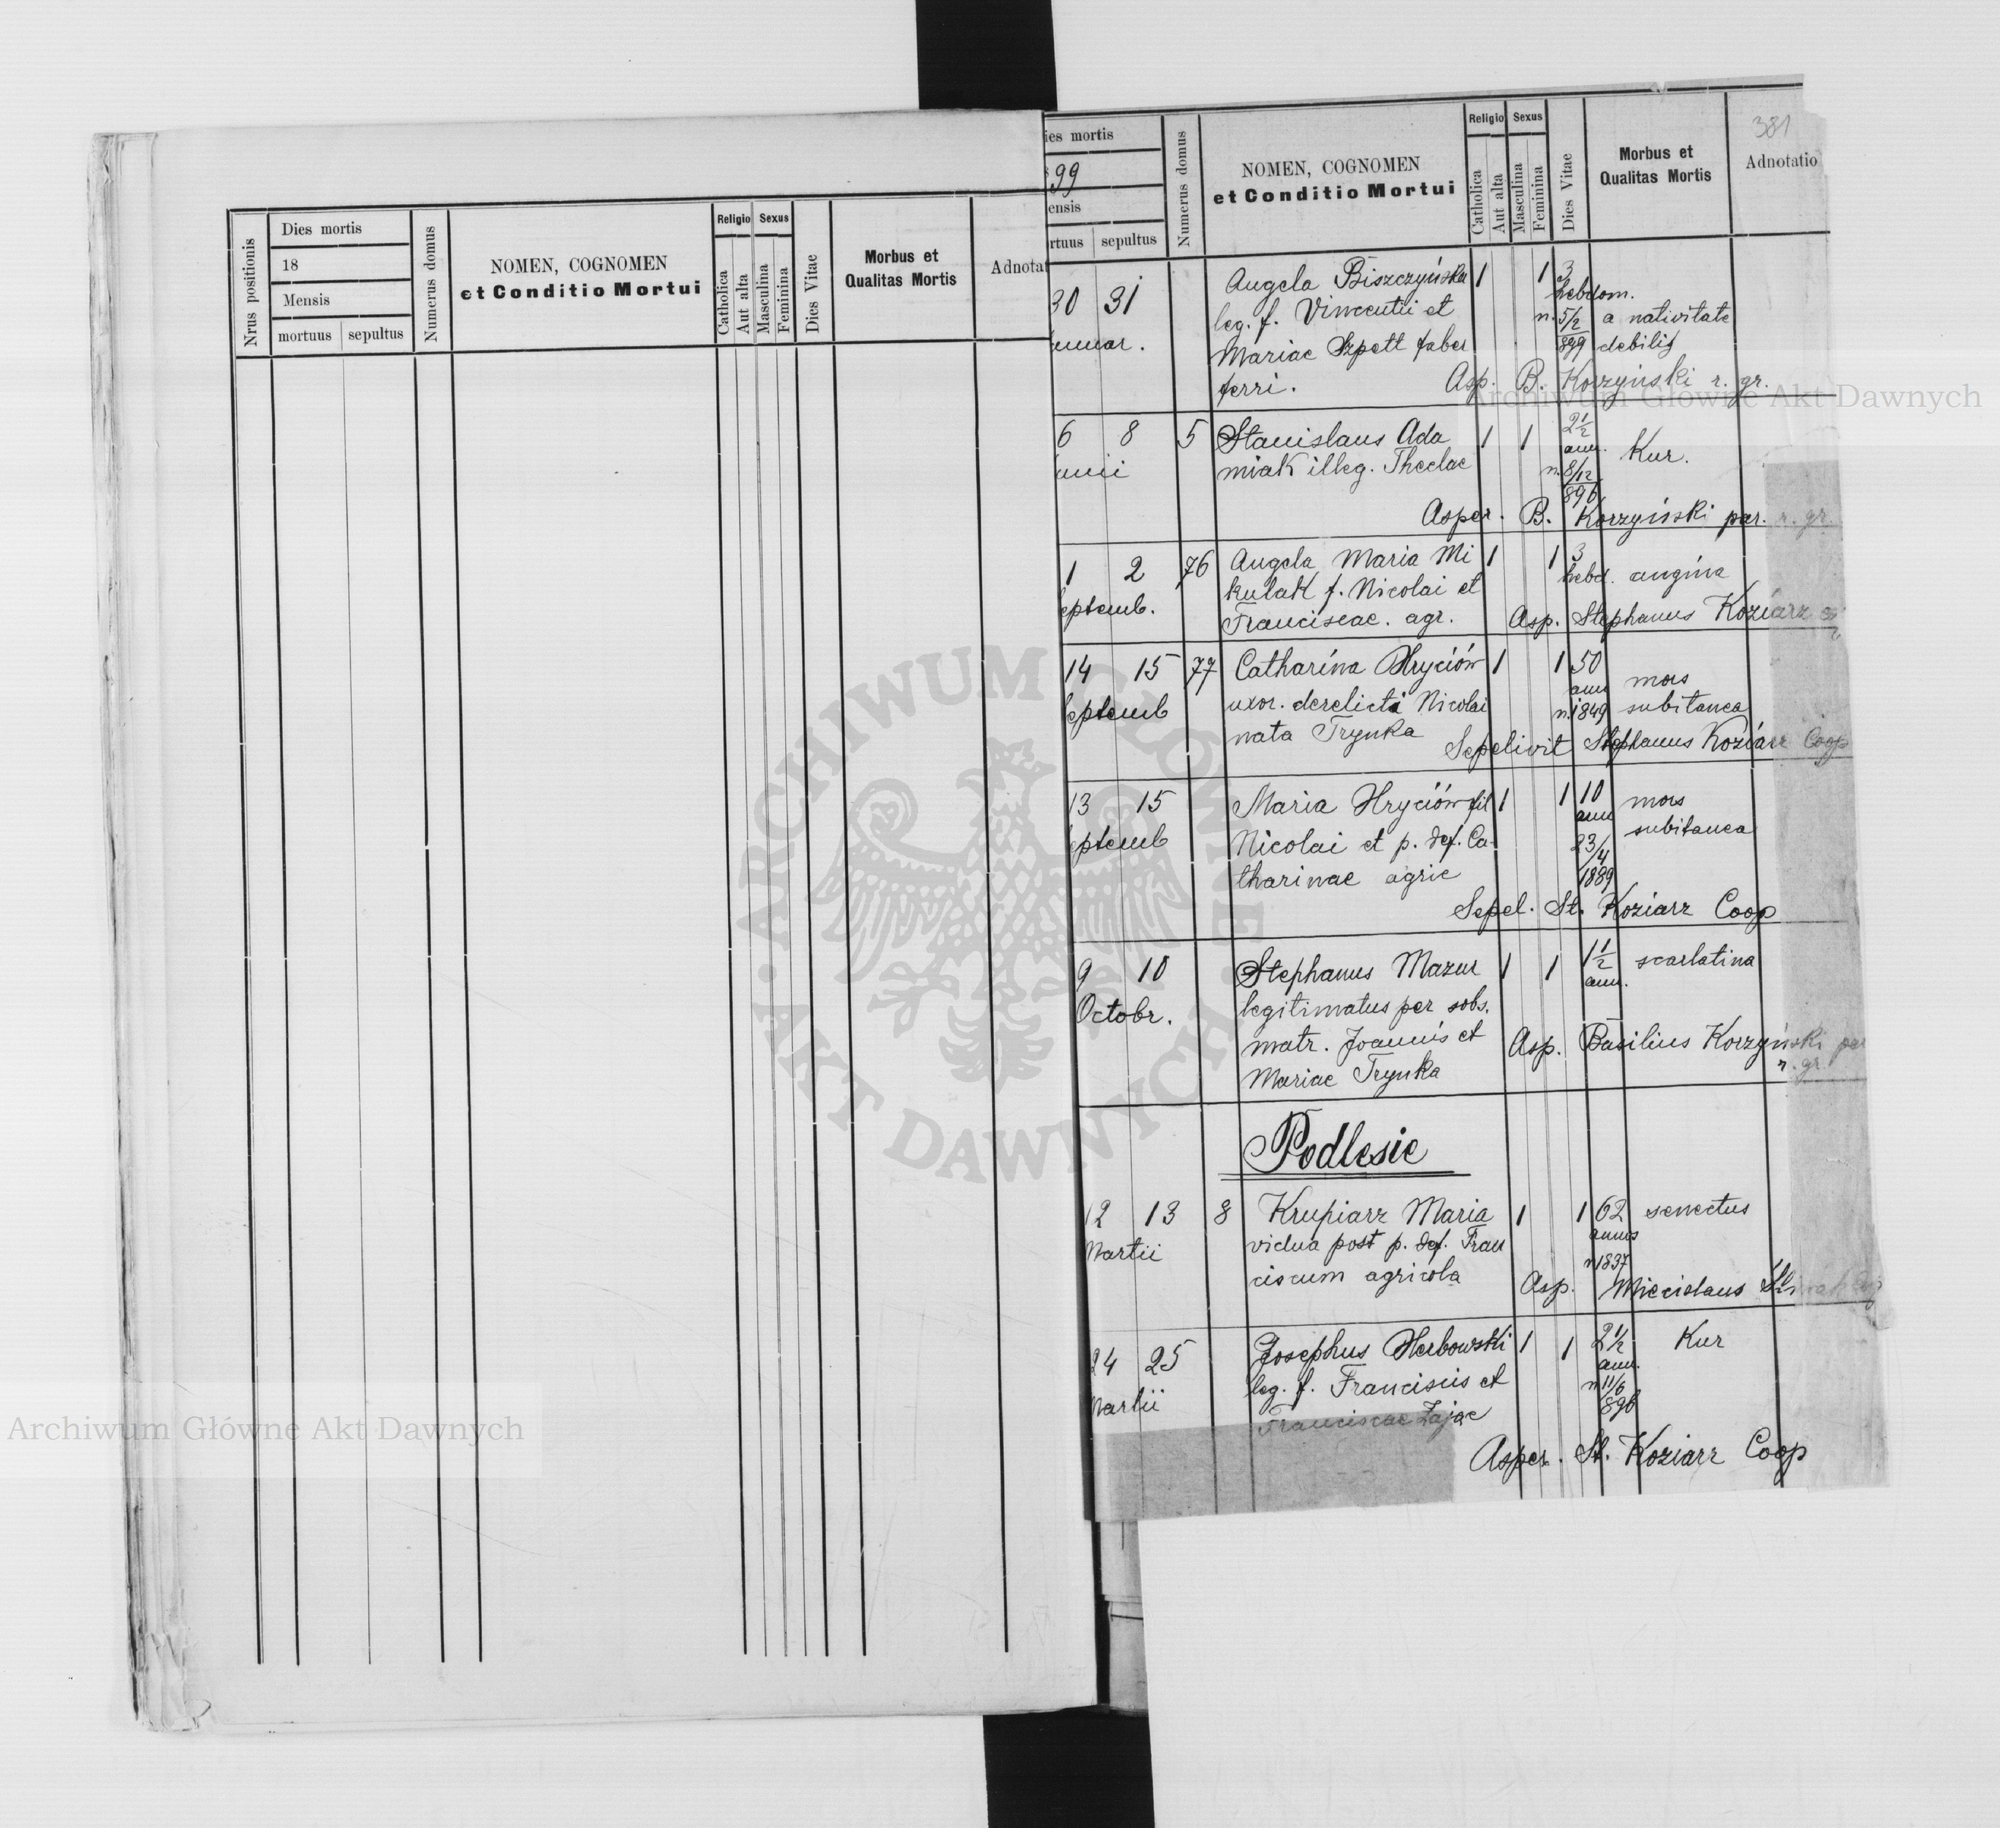 Nrus positionis
Dies mortis
18
Mensis
mortuus sepultus
Numerus domus
NOMEN, COGNOMEN
et Conditio Mortui
Religio
Catholica
Aut alta
Sexus
Masculina
Feminina
Dies Vitae
Morbus et
Qualitas Mortis
Adnotat
ies mortis
99
ensis
rtuus sepultus
Numerus domus
NOMEN, COGNOMEN
et Conditio Mortui
Religio
Catholica
Aut alta
Sexus
Masculina
Feminina
Dies Vitae
Morbus et
Qualitas Mortis
381
Adnotatio
30 31 Angela Biszczyńska 1 1 3
hebdom.
leg. f. Vincentii et n. 5/2 a nativitate
nuar. Mariae Szpett faber 899 debilis
ferri. Asp. B. Korzyński r. gr.
6 8 5 Stanislaus Ada 1 1 2 1/2
ann. Kur.
unii miak illeg. Theclae n. 8/12
896
Asper. B. Korzyński par. r. gr.
1 2 76 Angela Maria Mi 1 1 3
hebd. angina
eptemb. kulak f. Nicolai et
Franciscae. agr. Asp. Stephanus Koziarz
14 15 77 Catharina Hryciów 1 1 50
ann mors
eptemb uxor. derelicta Nicolai n. 1849 subitanea
nata Trynka Sepelivit Stephanus Koziarz Coop
13 15 Maria Hryciów fil 1 1 10 mors
ann
eptemb Nicolai et p. def. Ca- 23/4 subitanea
tharinae agric 1889
Sepel. St. Koziarz Coop
9 10 Stephanus Mazur 1 1 1 1/2 scarlatina
ann.
Octobr. legitimatus per sobs.
matr. Joannis et Asp. Basilius Korzyński par
Mariae Trynka r. gr.
Podlesie
12 13 8 Krupiarz Maria 1 1 62 senectus
annos
Martii vidua post p. def. Fran n 1837
ciscum agricola Asp. Miecislaus
24 25 Josephus Herbowski 1 1 2 1/2 Kur
ann.
Martii leg. f. Francisis et n 11/6
896
Franciscae Zając
Asper. St. Koziarz Coop
Archiwum Główne Akt Dawnych
ARCHIWUM GŁÓWNE AKT DAWNYCH
Archiwum Główne Akt Dawnych